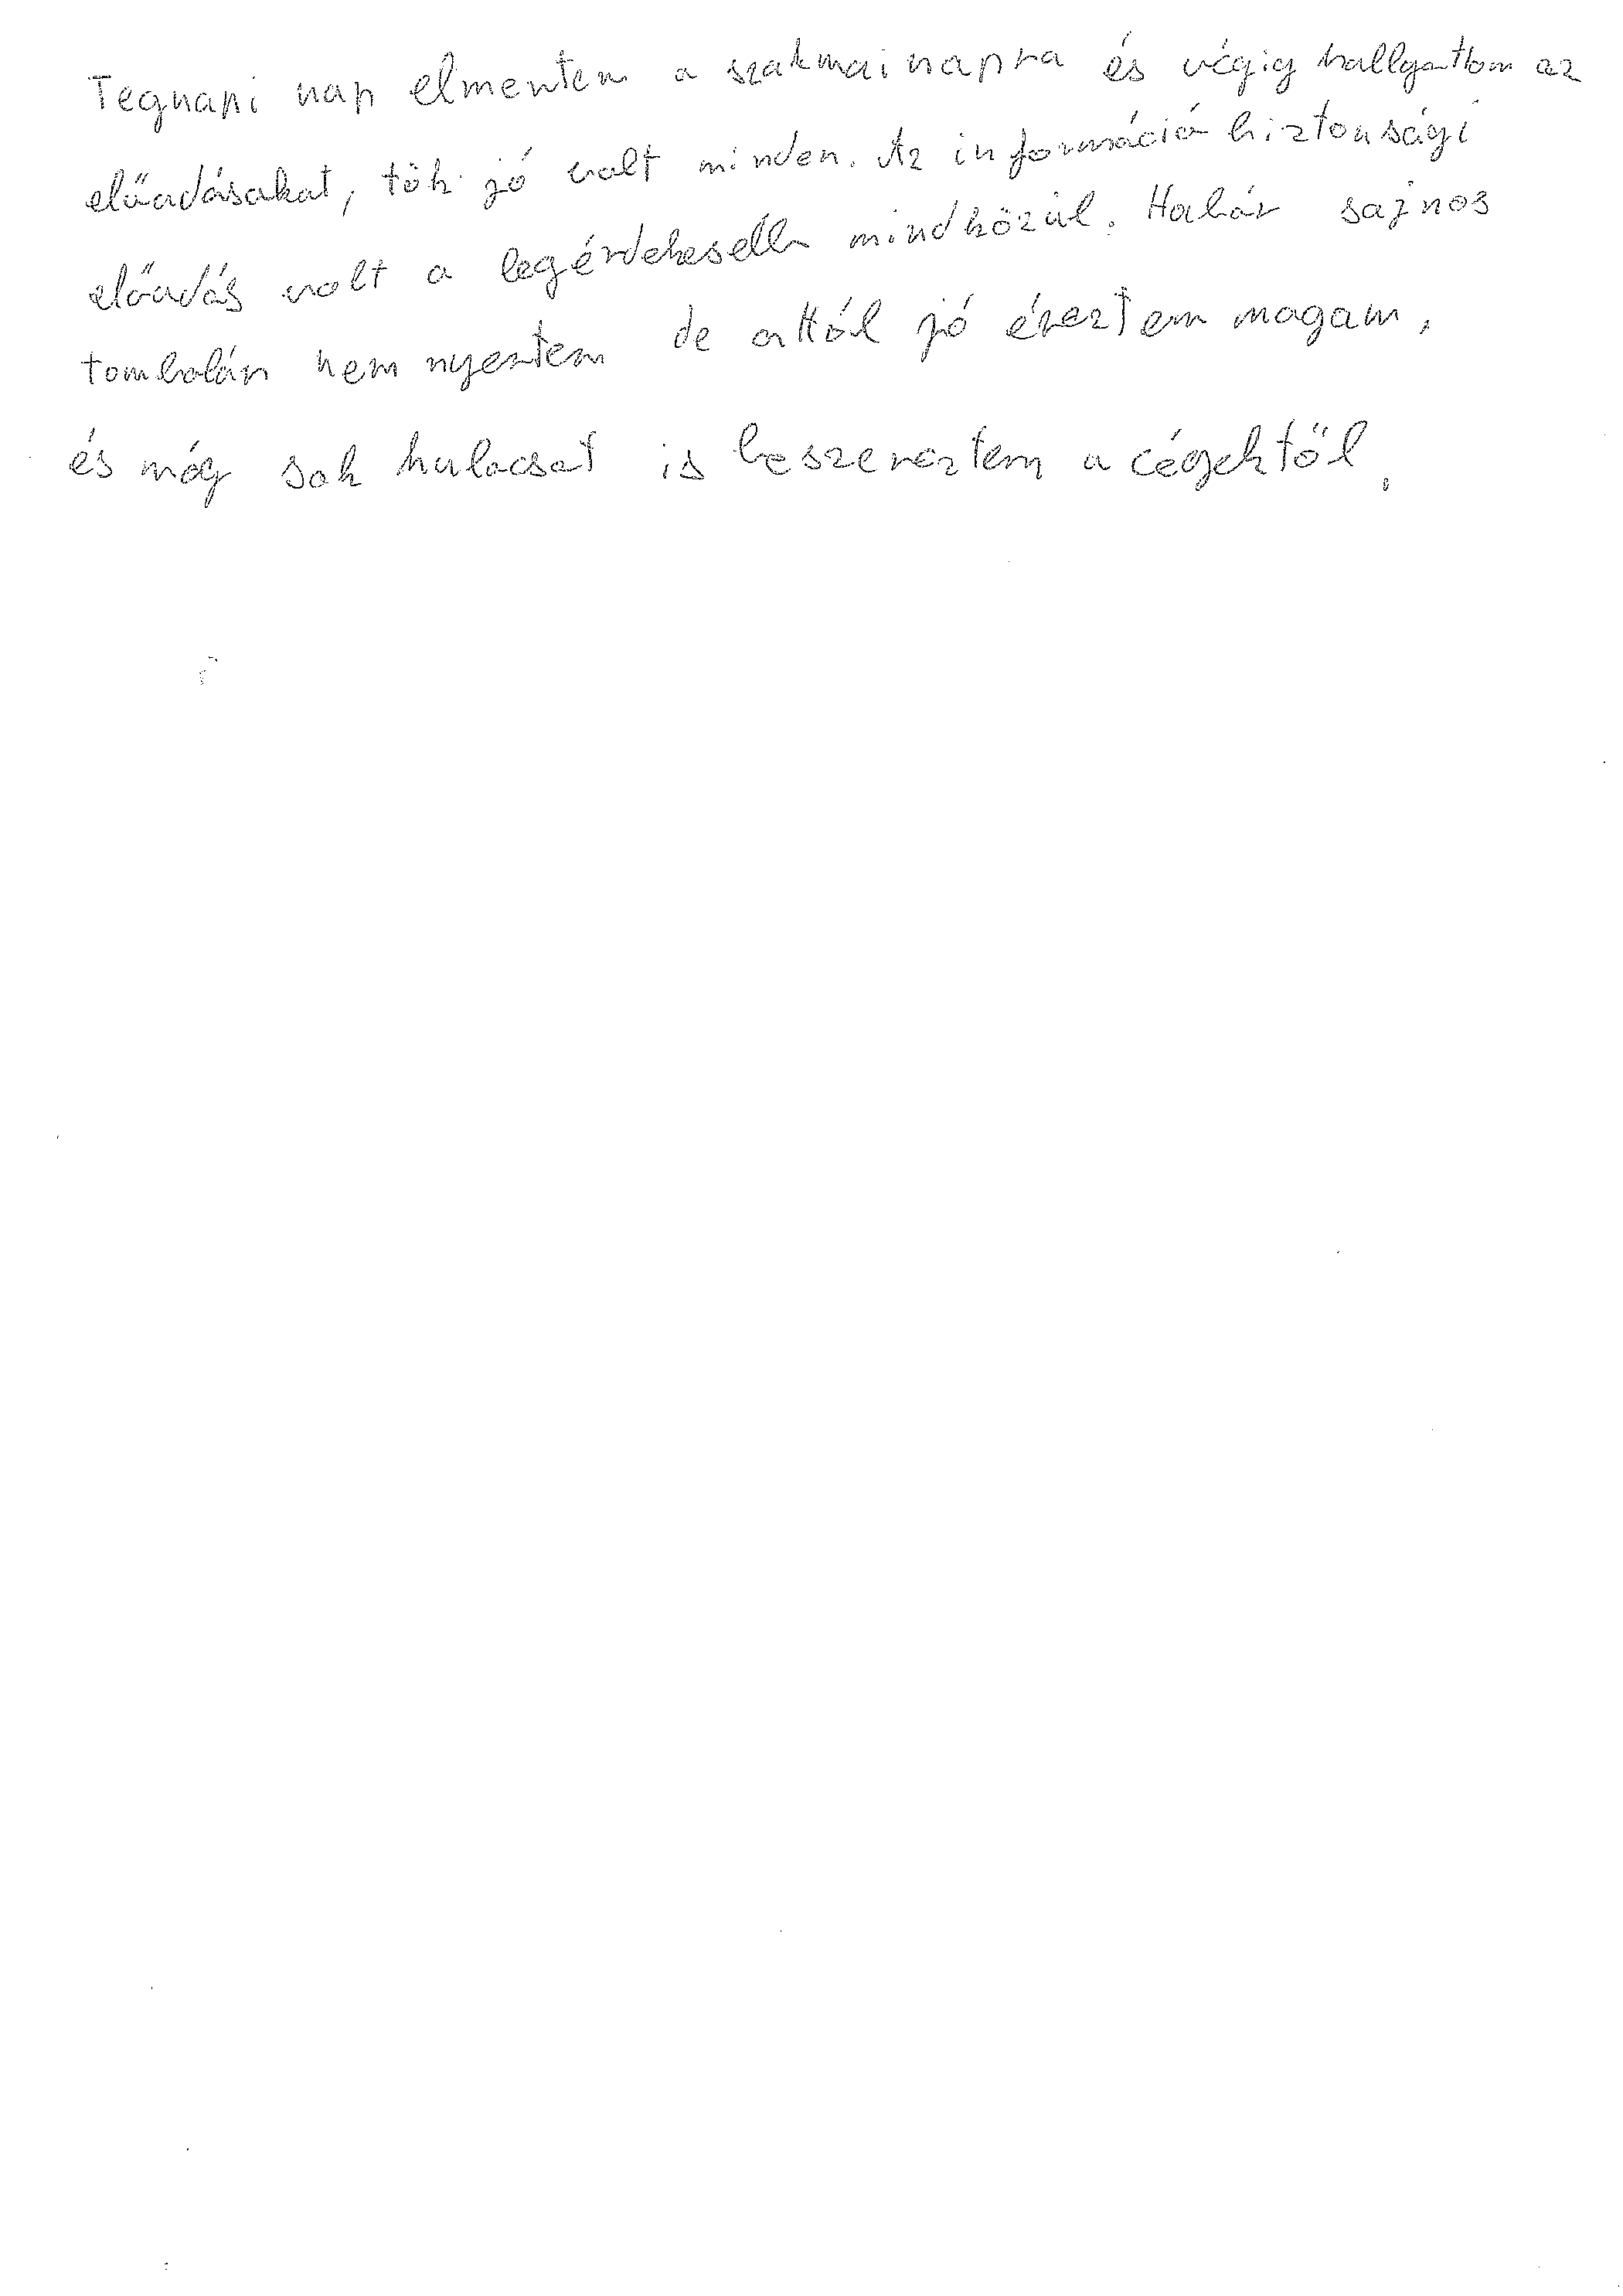 Tegnapi nap elmentem a szakmai napra és végig hallgattam az
előadásokat, tök jó volt minden. Az információ biztonsági
előadás volt a legérdekesebb mindközül. Habár sajnos
tombolán nem nyertem de attól jó éreztem magam,
és még sok kulacsot is beszereztem a cégektől.